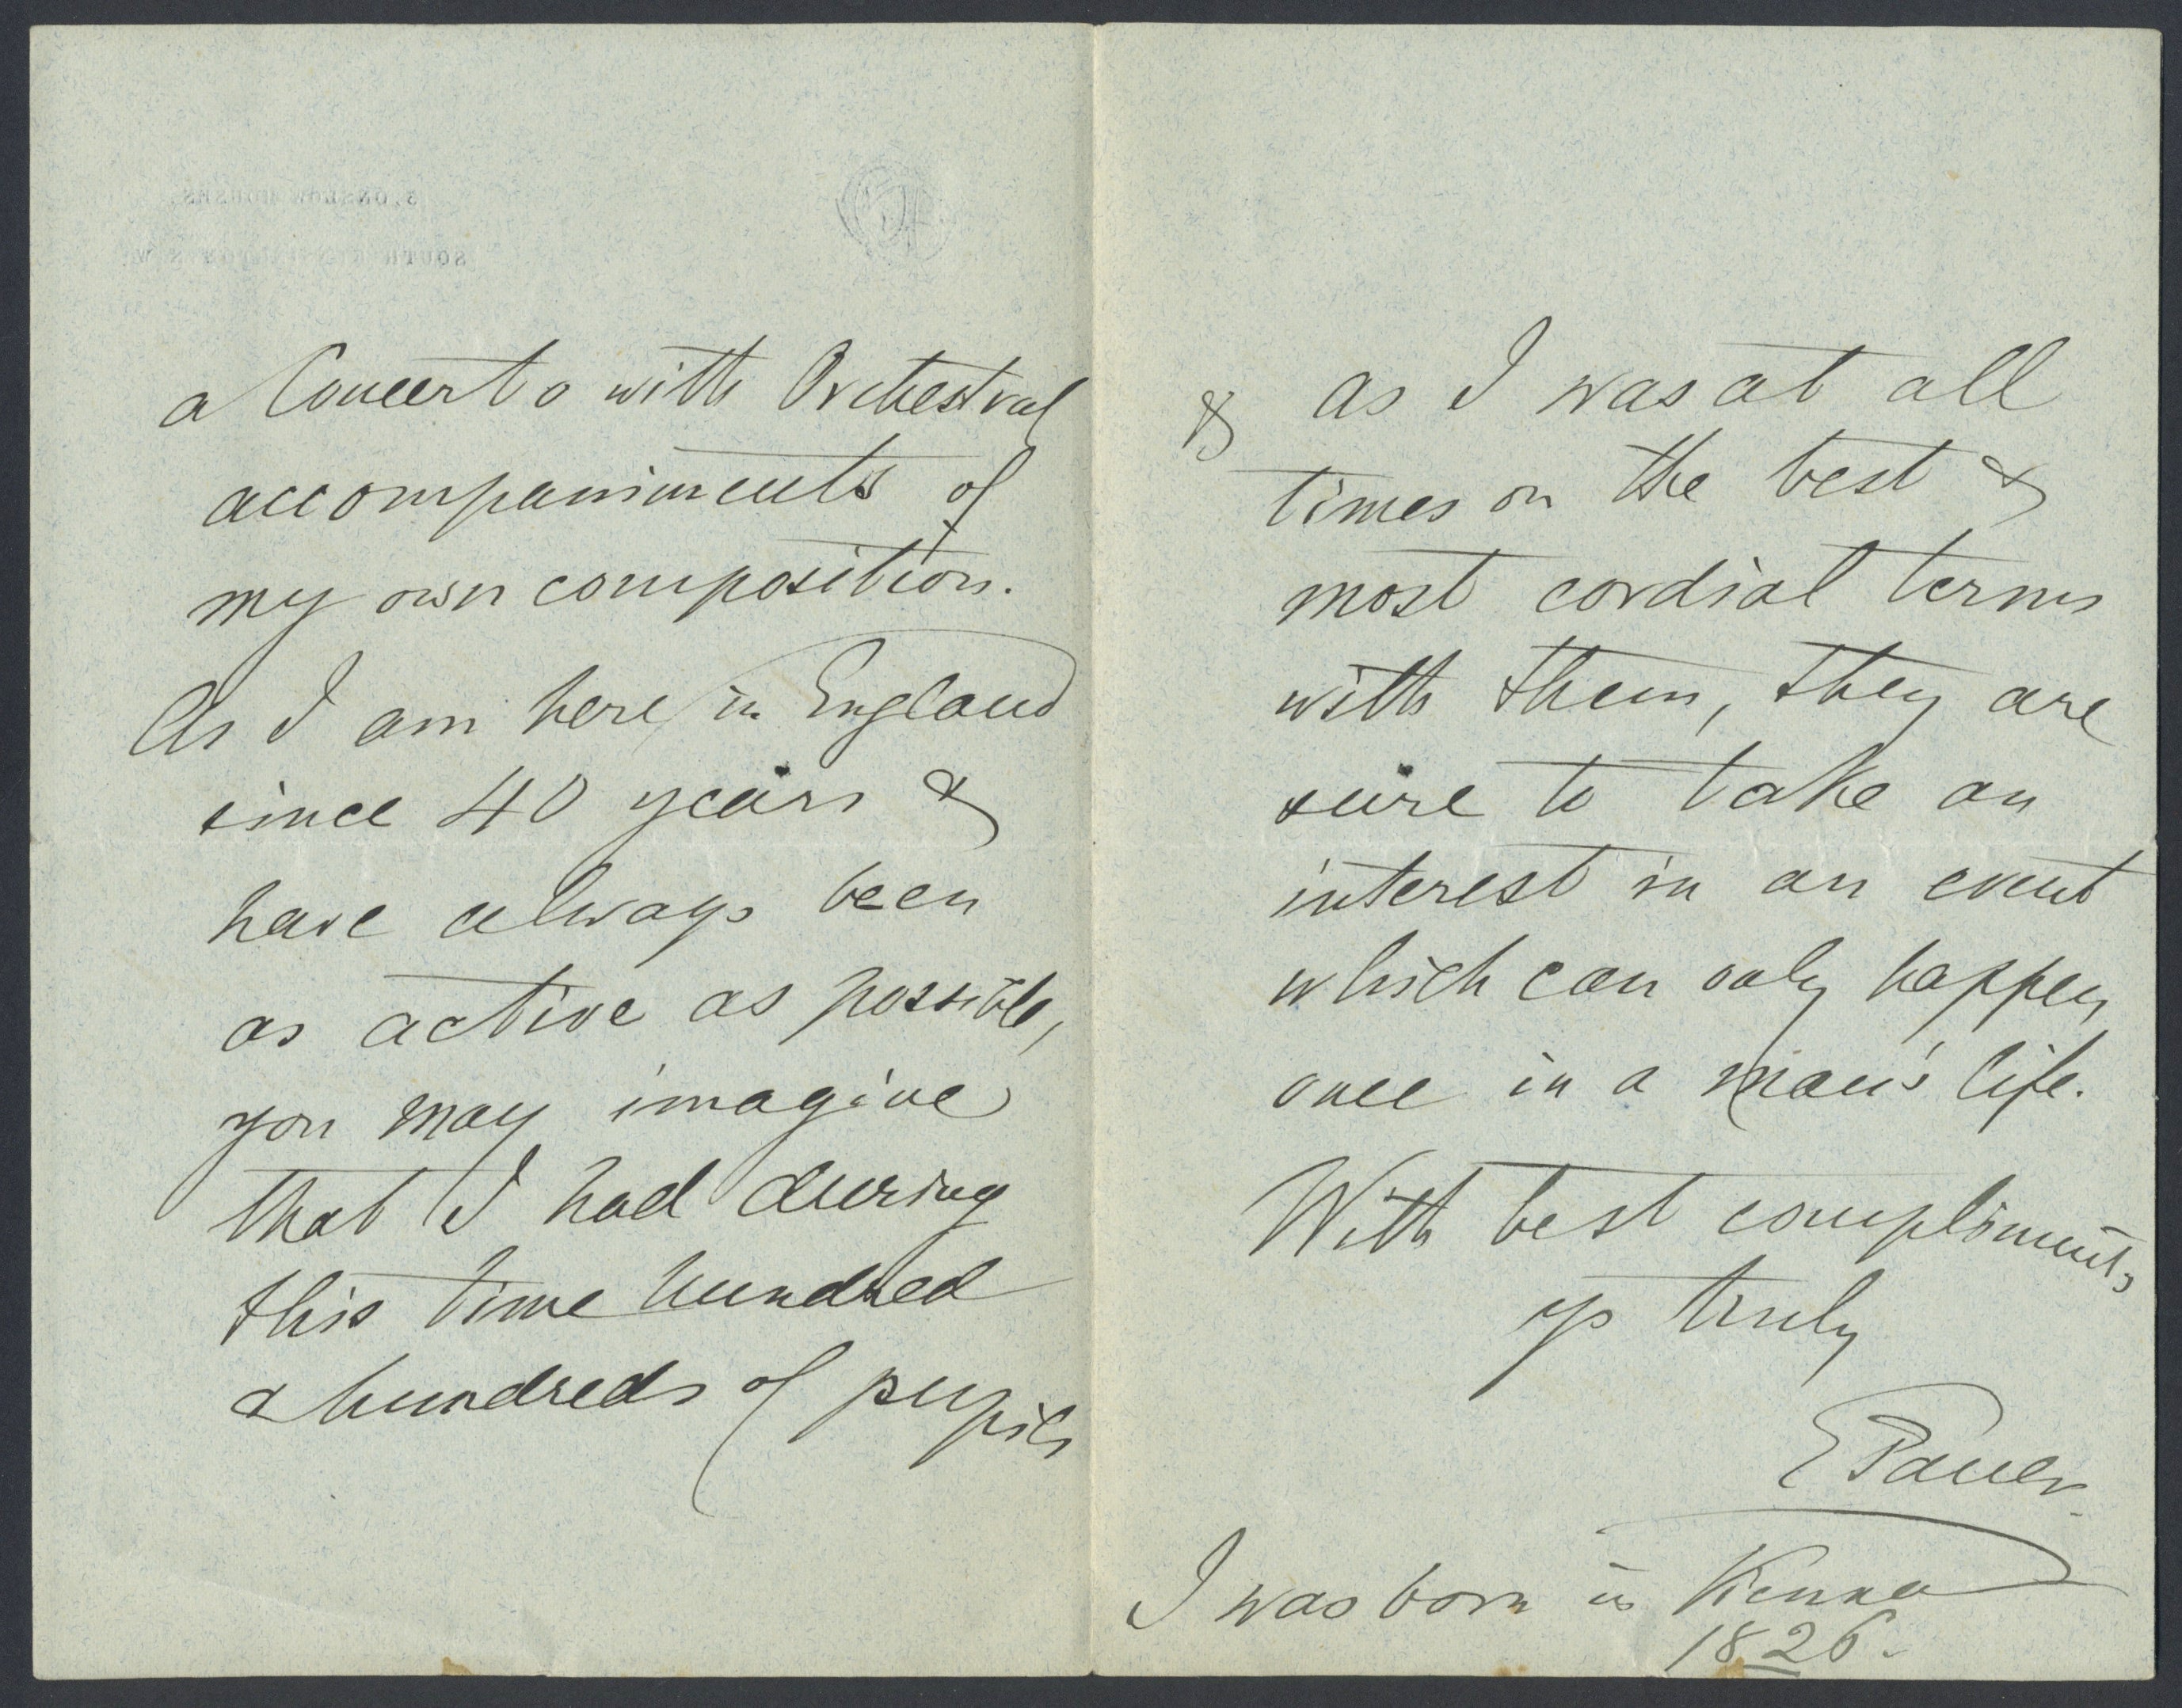 a Concerto with Orchestral
accompaniments of
my own composition.
As I am here in England
since 40 years &
have always been
as active as possible,
you may imagine
that I had during
this time hundred
& hundreds of pupils
& as I was at all
times on the best &
most cordial terms
with them, they are
sure to take an
interest in an event
which can only happen
once in a man's life.
With best compliments
ys truly
E Pauer.
I was born in Vienna
1826.